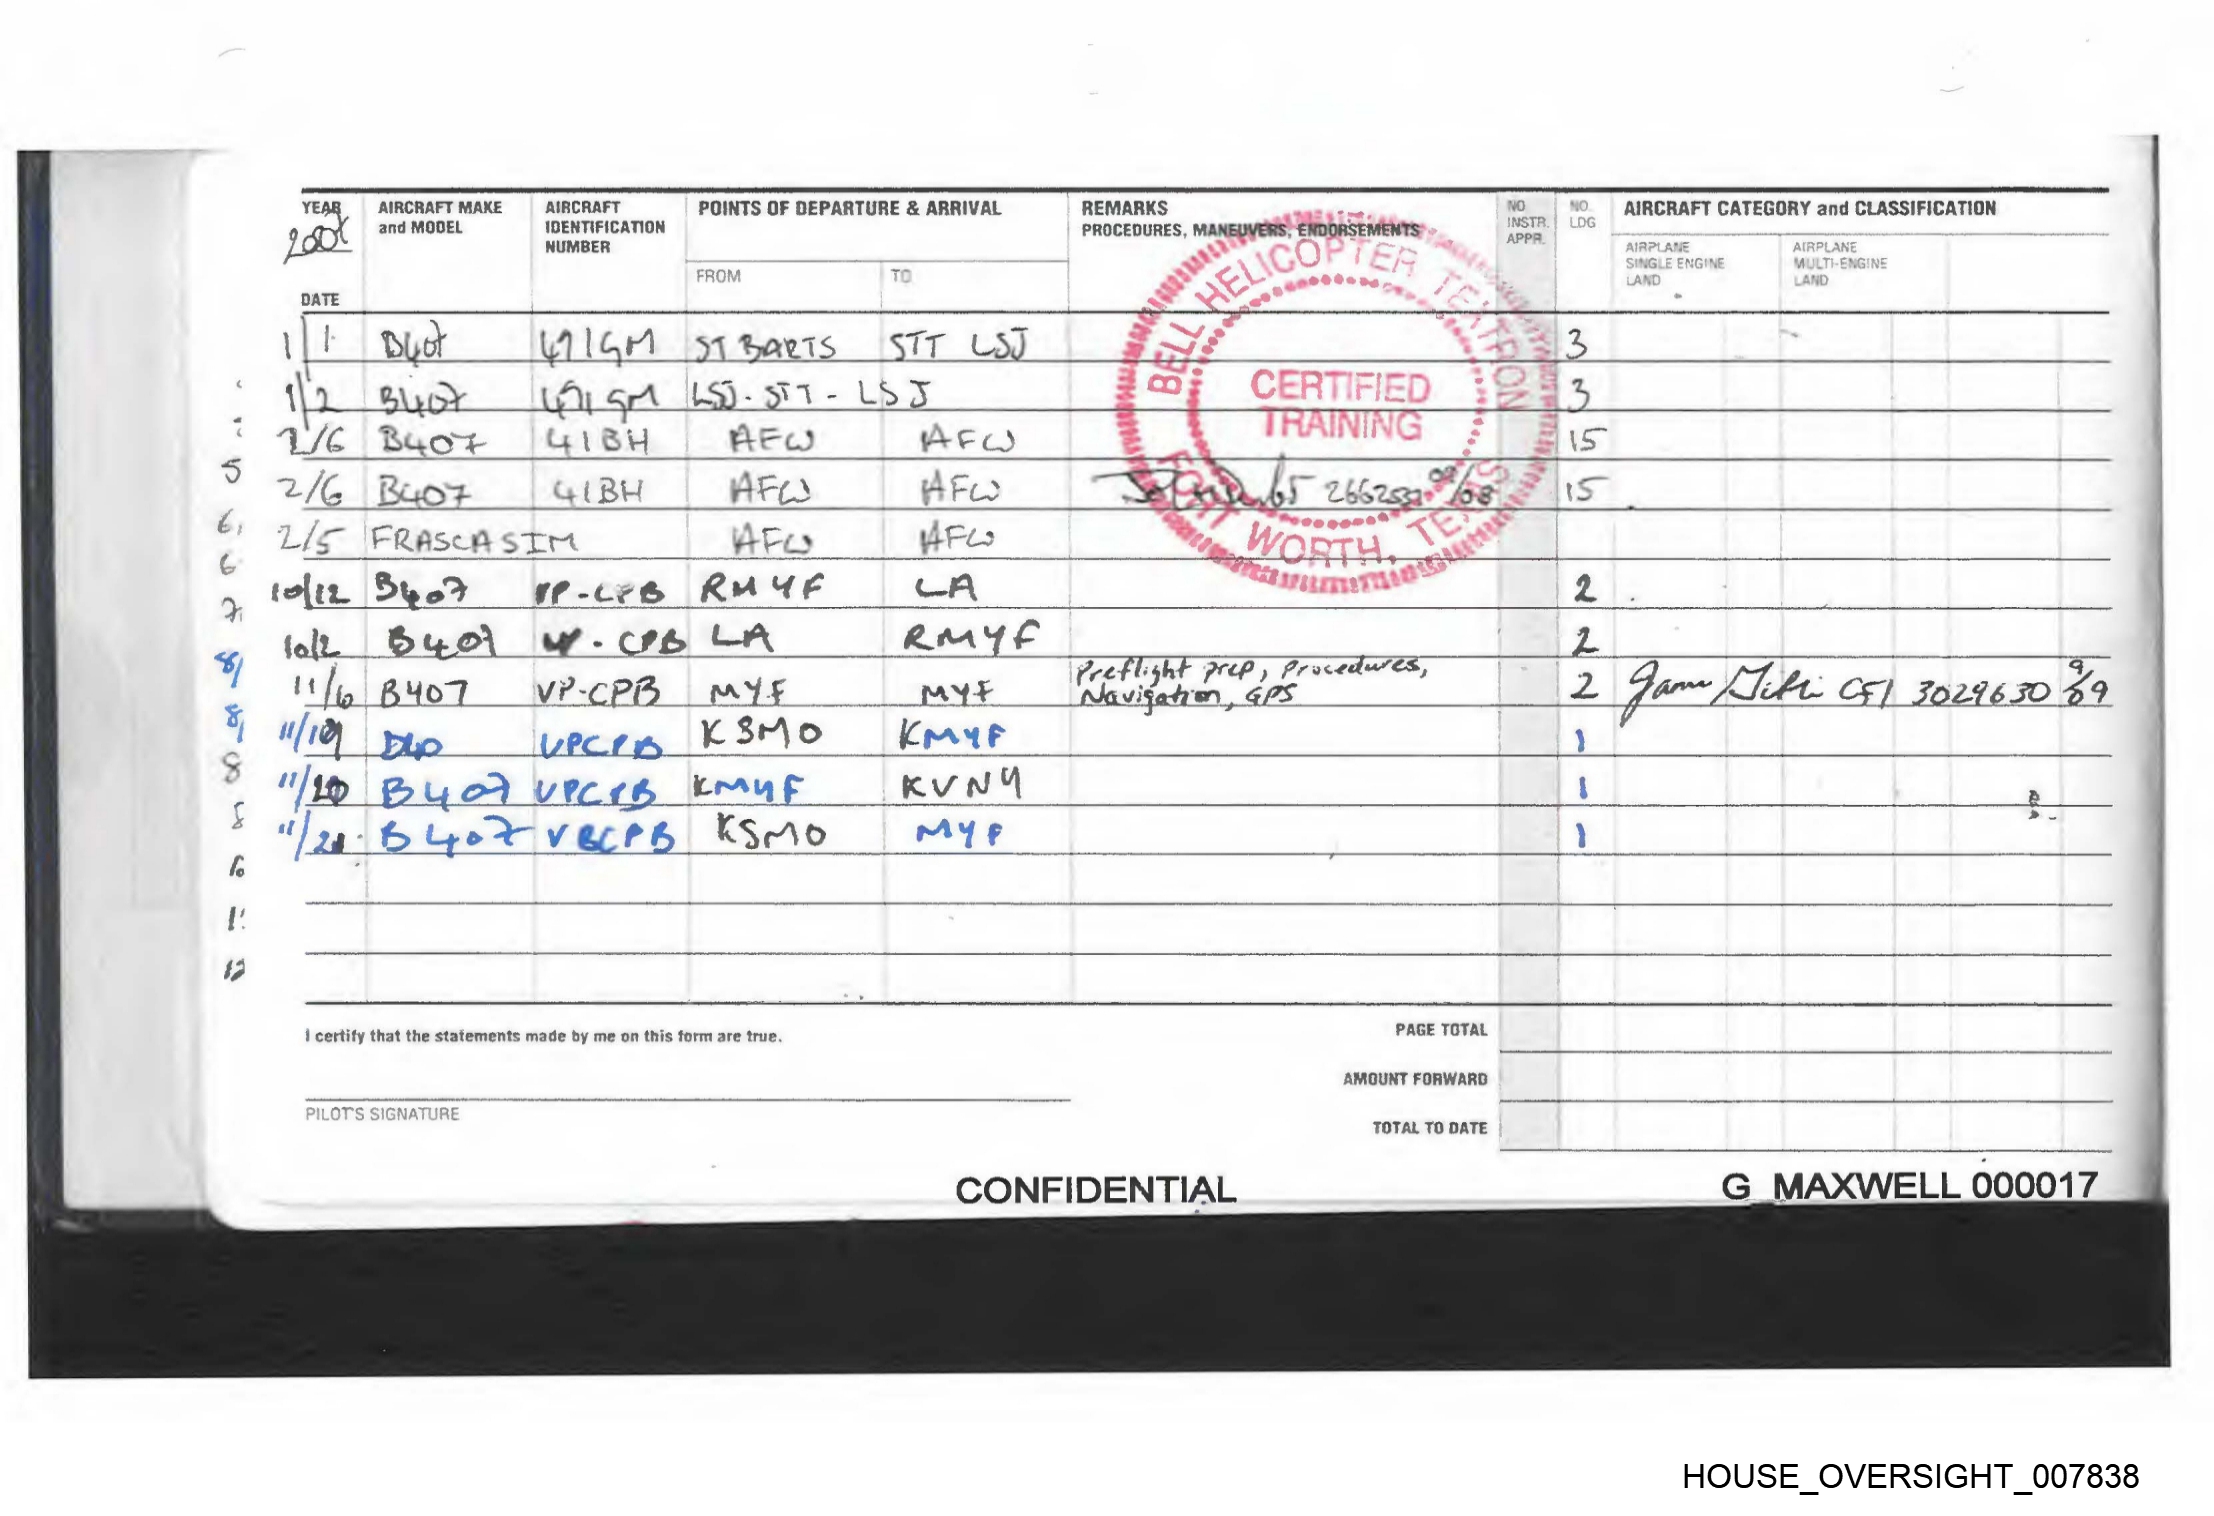 YEAR AIRCRAFT MAKE and MODEL AIRCRAFT IDENTIFICATION NUMBER POINTS OF DEPARTURE & ARRIVAL REMARKS PROCEDURES, MANEUVERS, ENDORSEMENTS NO INSTR. APPR. NO. LDG AIRCRAFT CATEGORY and CLASSIFICATION
DATE FROM TO AIRPLANE SINGLE ENGINE LAND AIRPLANE MULTI-ENGINE LAND
BELL HELICOPTER TEXTRON
CERTIFIED
TRAINING
FORT WORTH, TEXAS
1/1 B407 491GM ST BARTS STT LSJ 3
1/2 B407 491GM LSJ - STT - LSJ 3
2/6 B407 41BH AFW AFW 15
2/6 B407 41BH AFW AFW 15
2/5 FRASCA SIM AFW AFW
10/12 B407 VP-CPB RMYF LA 2
10/2 B407 - CPB LA RMYF 2
11/6 B407 VP-CPB MYF MYF Preflight prep, Procedures, Navigation, GPS 2 CFI 3029630 9/09
11/19 VPCPB KSMO KMYF 1
11/20 B407 VPCPB KMYF KVNY 1
11/21 B407 VBCPB KSMO MYF 1
5
6
6
7
8
8
8
8
1
12
I certify that the statements made by me on this form are true.
PAGE TOTAL
AMOUNT FORWARD
PILOT'S SIGNATURE
TOTAL TO DATE
CONFIDENTIAL
G MAXWELL 000017
HOUSE_OVERSIGHT_007838